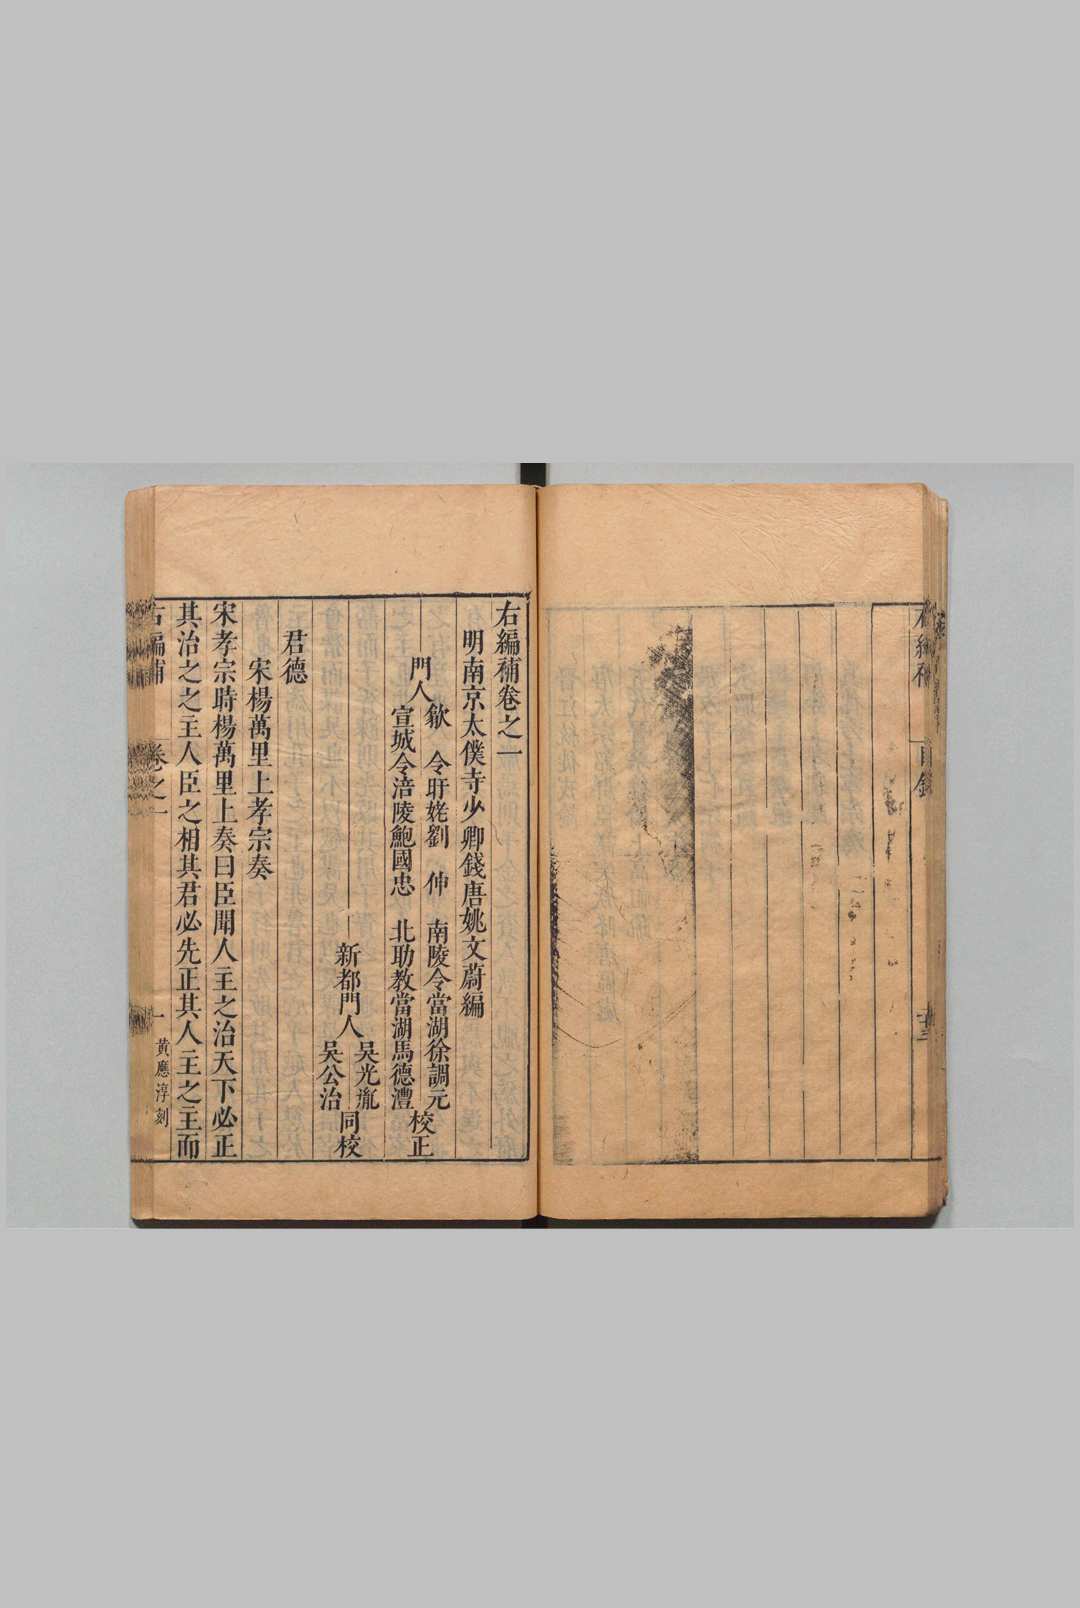 右編補
目錄
右編補卷之一
明南京太僕寺少卿錢唐姚文蔚編
門人
歙 令盱姥劉 伸 南陵令當湖徐調元
宣城令涪陵鮑國忠 北助教當湖馬德灃
校正
新都門人
吳光胤
吳公治
同校
君德
宋楊萬里上孝宗奏
宋孝宗時楊萬里上奏曰臣聞人主之治天下必正
其治之之主人臣之相其君必先正其人主之主而
右編補
卷之一
一
黃應淳刻